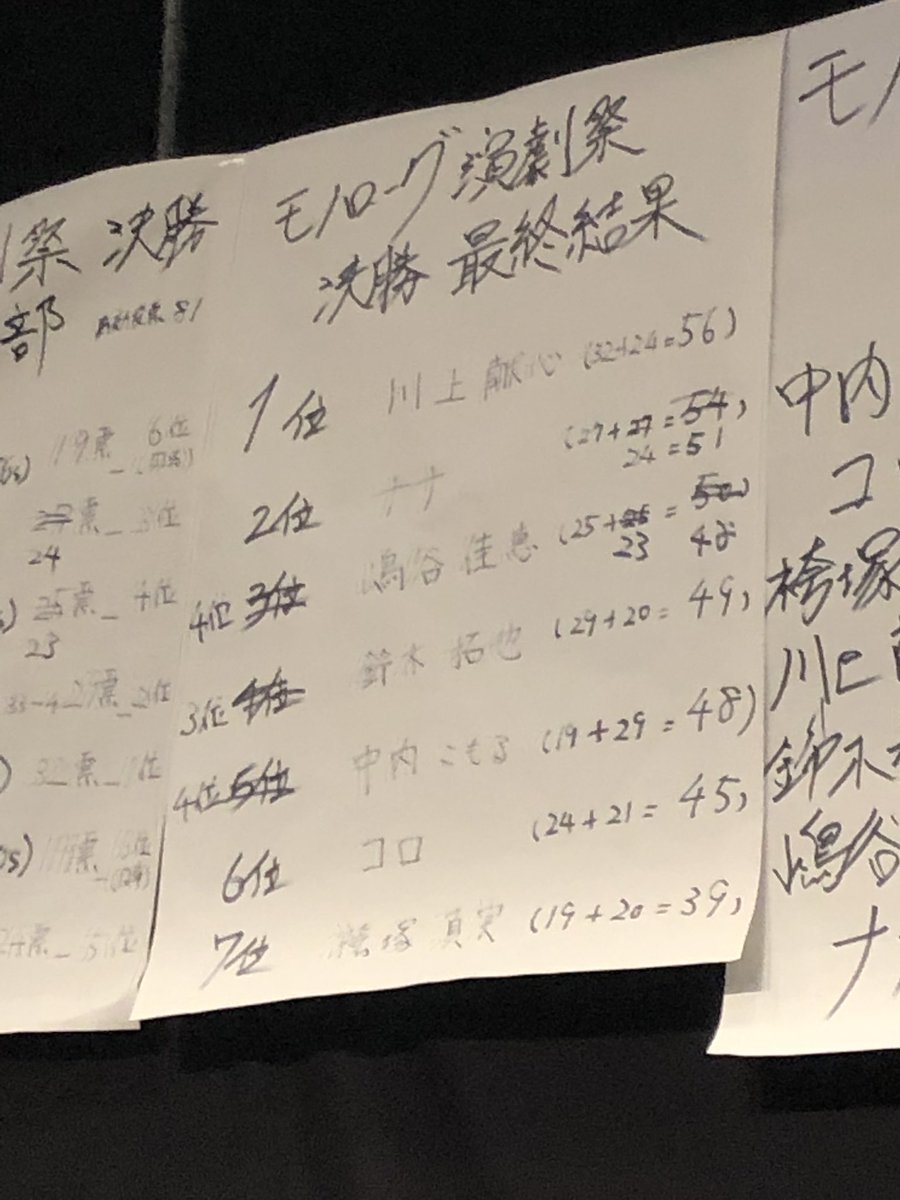 祭 決勝
部
81
19票_ 6位
27票_ 3位
24
25票_ 4位
23
33-4 2位
32票_1位
24票_
モノローグ演劇祭
決勝 最終結果
1位 川上献心 (32+24=56)
2位 ナナ (27+27=54)
24=51
4位 3位 嶋谷佳恵 (25+25=50)
23 48
3位 4位 鈴木拓也 (29+20=49)
4位 5位 中内こもる (19+29=48)
6位 コロ (24+21=45)
7位 袴塚真実 (19+20=39)
モノ
中内
コ
袴塚
川上
鈴木
嶋谷
ナ